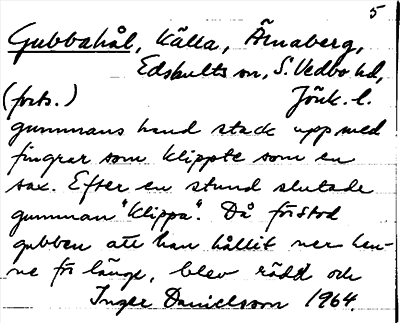 5
Gubbahål, Källa, Äsnaberg,
Edshults sn, S. Vedbo hd,
(forts.) Jönk. l.
gummans hand stack upp med
fingrar som klippte som en
sax. Efter en stund slutade
gumman "klippa". Då förstod
gubben att han hållit ner hen-
ne för länge, blev rädd och
Inger Danielsson 1964.